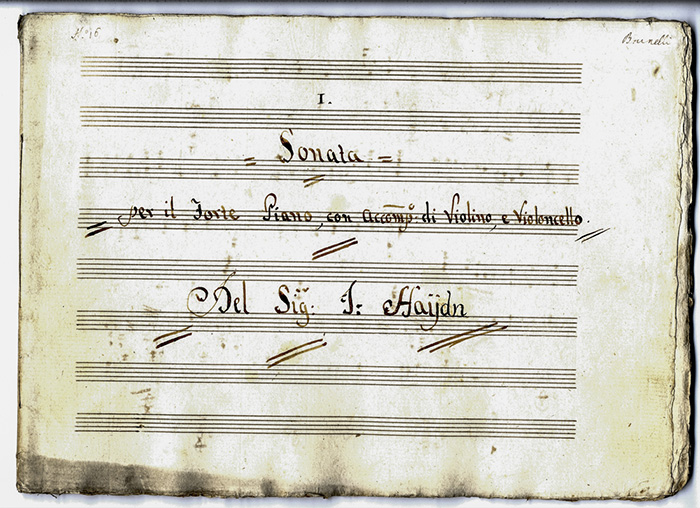 N.º 16
Brunelli
I.
= Sonata =
per il Forte Piano, con Accomp:º di Violino, e Violoncello.
Del Sig:r J: Haÿdn